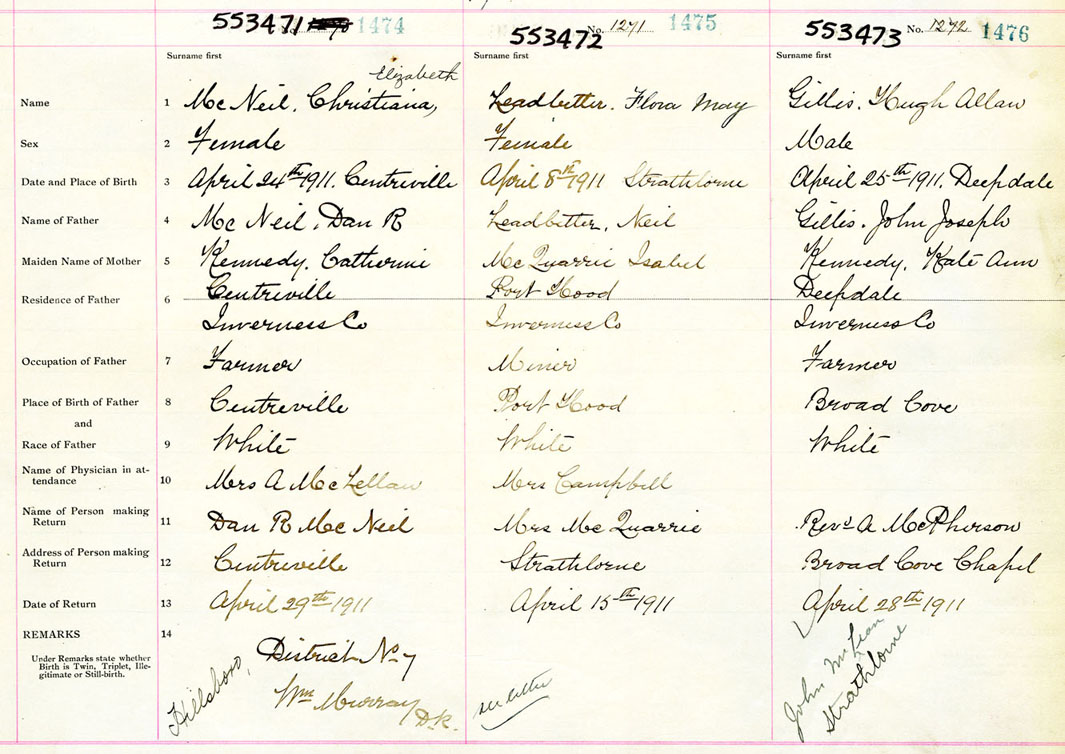 553471 1474 553472 No. 1271 1475 553473 No. 1272 1476
Surname first Surname first Surname first
Elizabeth
Name 1 Mc Neil, Christiana, Leadbitter, Flora May Gillis, Hugh Allan
Sex 2 Female Female Male
Date and Place of Birth 3 April 24th 1911. Centriville April 8th 1911 Strathlorne April 25th 1911. Deepdale
Name of Father 4 Mc Neil, Dan R Leadbitter, Neil Gillis. John Joseph
Maiden Name of Mother 5 Kennedy, Catherine Mc Quarrie Isabel Kennedy, Kate Ann
Residence of Father 6 Centreville Port Hood Deepdale
Inverness Co Inverness Co Inverness Co
Occupation of Father 7 Farmer Miner Farmer
Place of Birth of Father 8 Centreville Port Hood Broad Cove
and
Race of Father 9 White White White
Name of Physician in at-
tendance 10 Mrs A McLellan Mrs Campbell
Name of Person making
Return 11 Dan R Mc Neil Mrs Mc Quarrie Revd A McPherson
Address of Person making
Return 12 Centreville Strathlorne Broad Cove Chapel
Date of Return 13 April 29th 1911 April 15th 1911 April 28th 1911
REMARKS 14
Under Remarks state whether
Birth is Twin, Triplet, Ille-
gitimate or Still-birth.
District No 7
Hillsboro,
Wm Murray D.R.
see letter
John McLean
Strathlorne